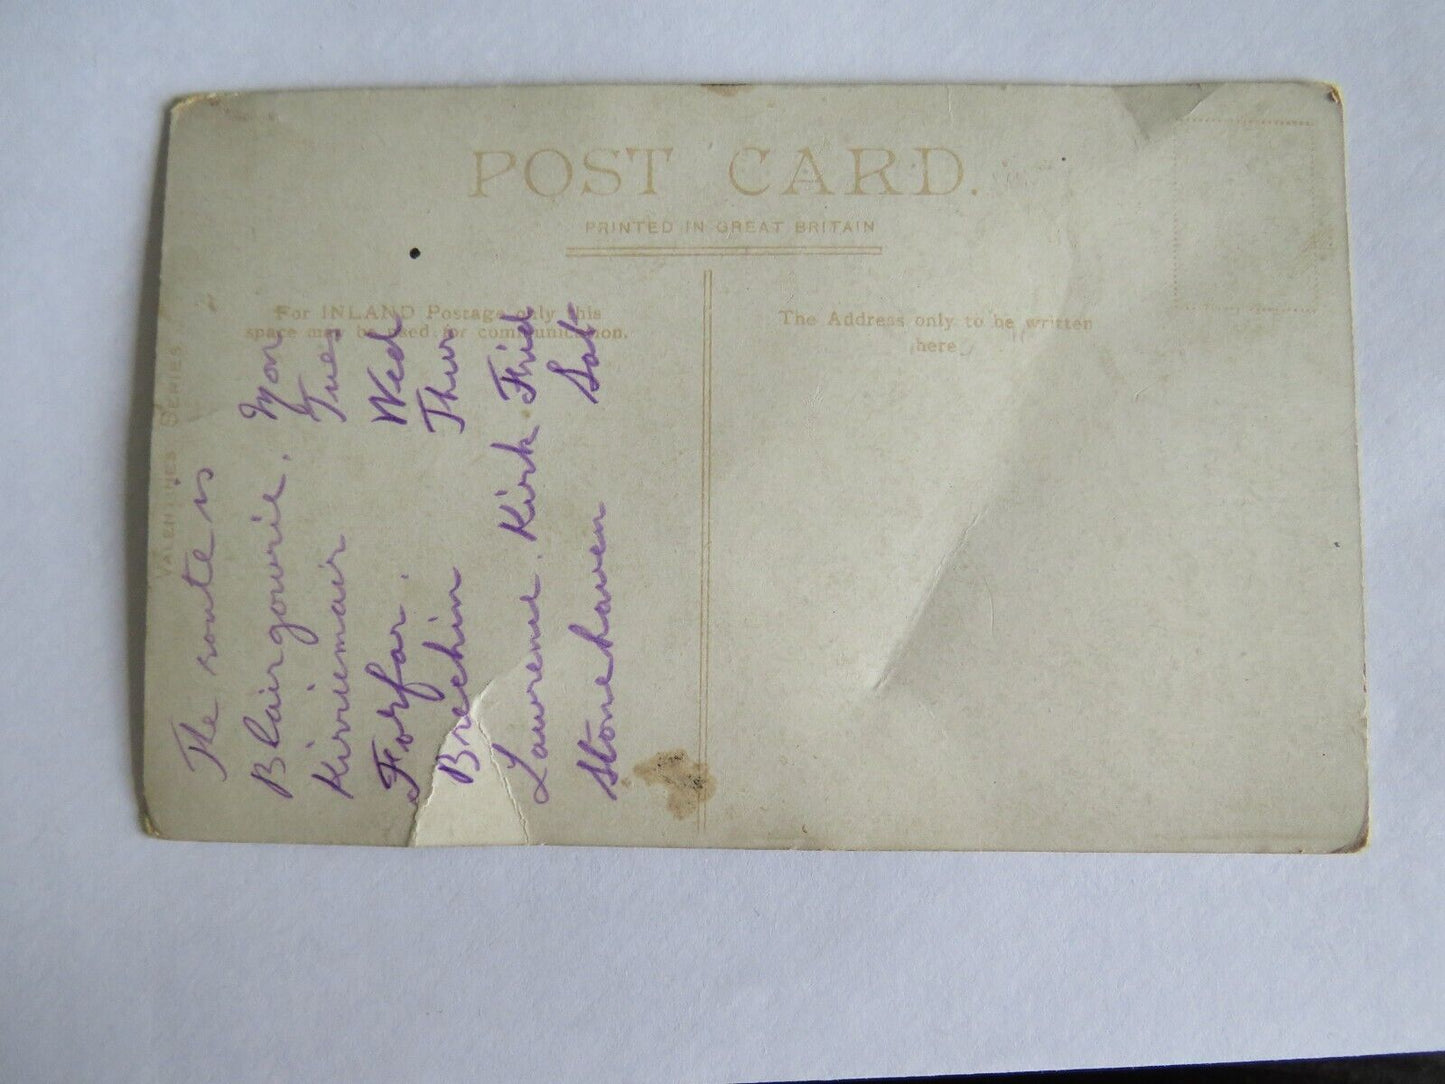 POST CARD.
PRINTED IN GREAT BRITAIN
For INLAND Postage only this
space may be used for communication.
The Address only to be written
here
VALENTINES SERIES
The route is
Blairgowrie. Mon
Kirriemair Tues
Forfar. Wed
Brechin Thur
Lawrence. Kirk Frid
Stonehaven Sat